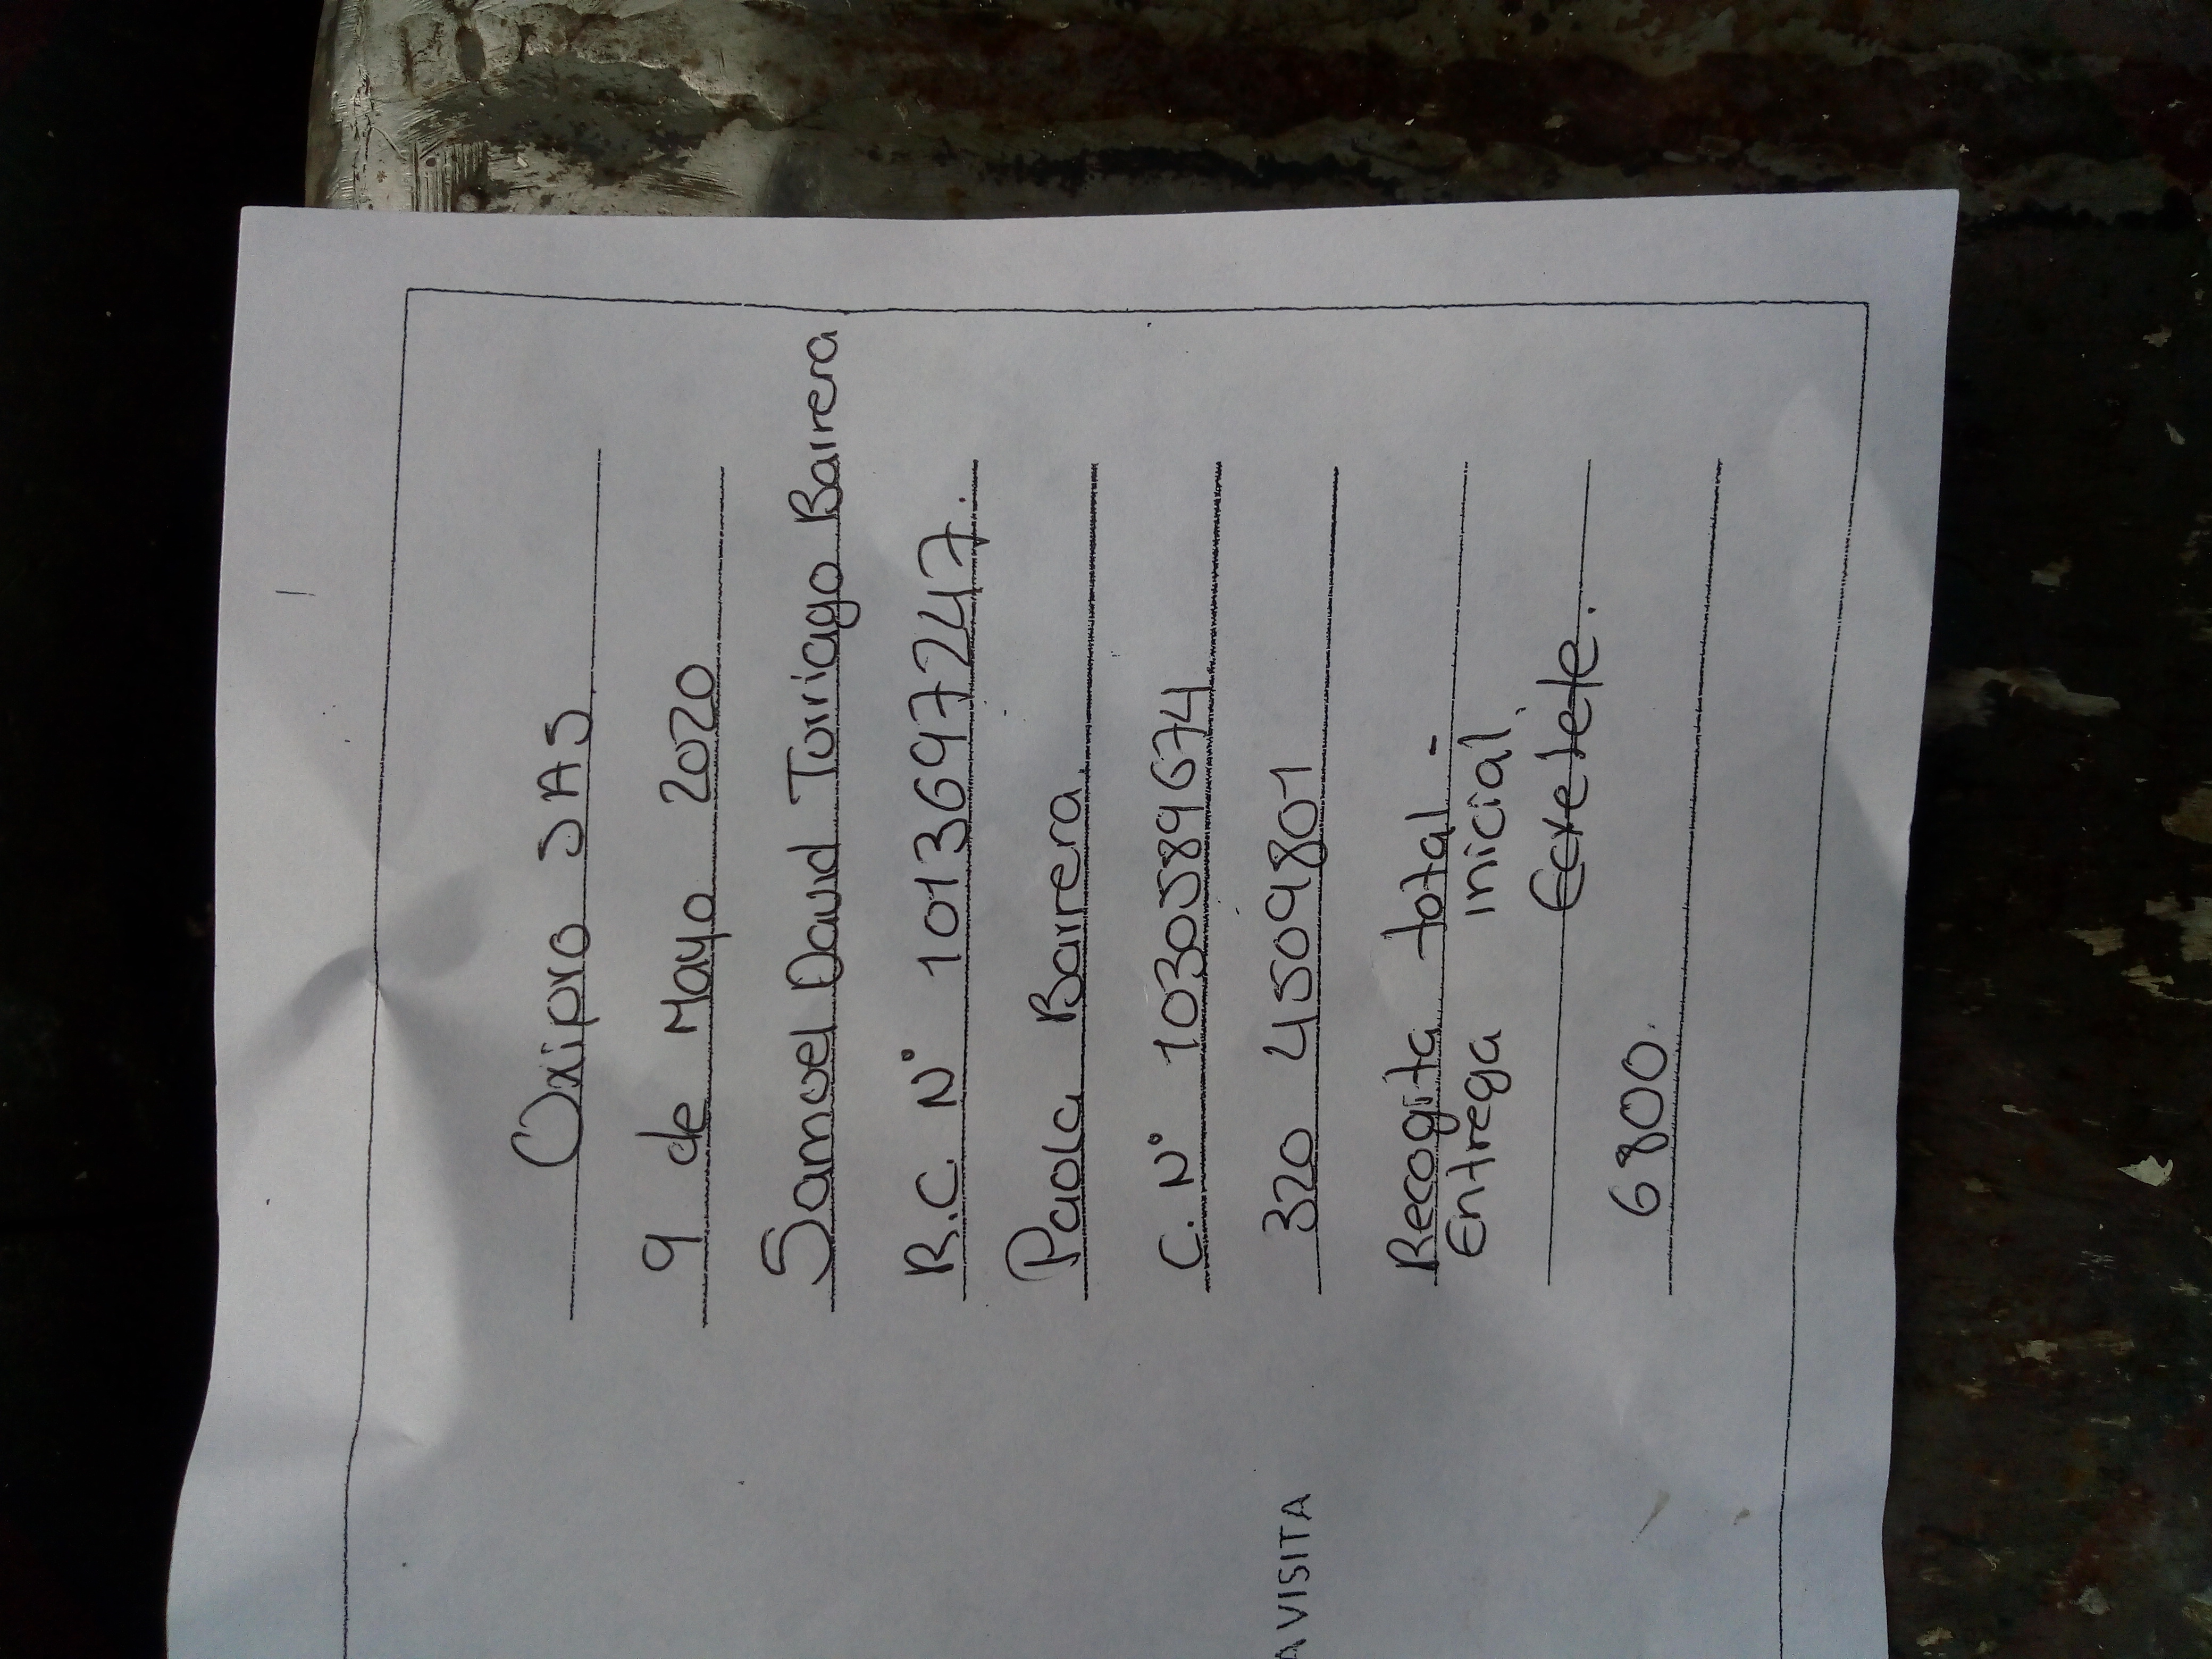 Oxipro SAS
9 de Mayo 2020
Samuel David Turriago Barrera
R.C. N° 1013697247.
Paola Barrera.
C. N° 1030589674
320 4509801
Recogita total -
Entrega inicial.
6800.
A VISITA